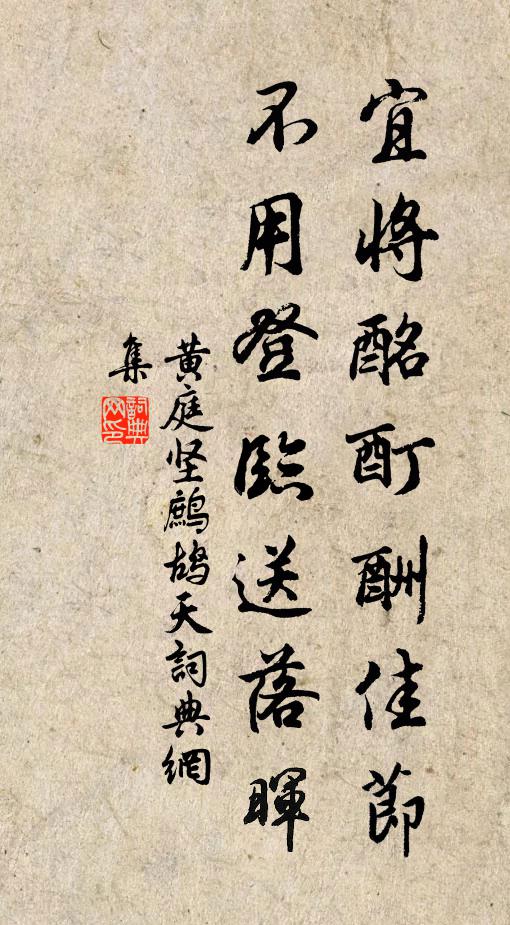 宜將酩酊酬佳節
不用登臨送落暉
黄庭坚鹧鸪天詞典網
集
詞典网印